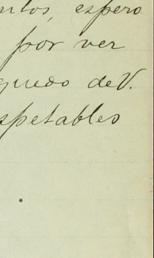 ntos, espero
por ver
quedo de V.
spetables